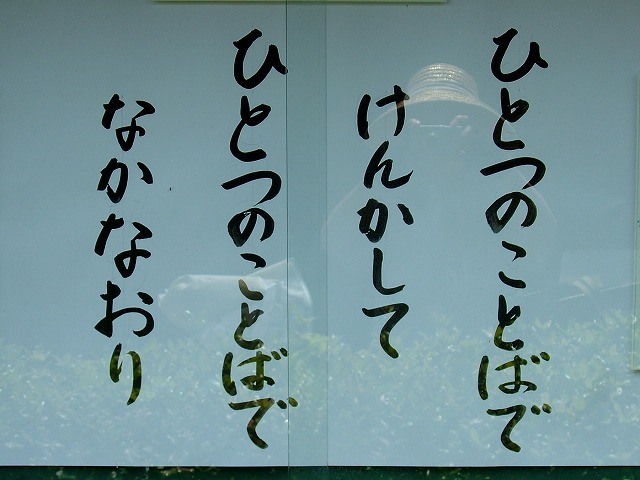 ひとつのことばで
けんかして
ひとつのことばで
なかなおり